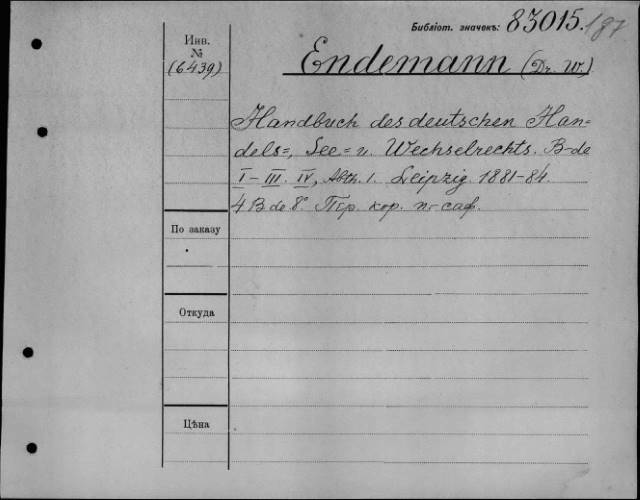 Библіот. значекъ: 83015.
Инв.
№
(6439)
Endemann (Dr. W.)
Handbuch des deutschen Han=
dels=, See= u. Wechselrechts. B-de
I-III. IV, Abth. 1. Leipzig. 1881-84.
4 B-de 8° Пер. кор. п. саф.
По заказу
Откуда
Цѣна